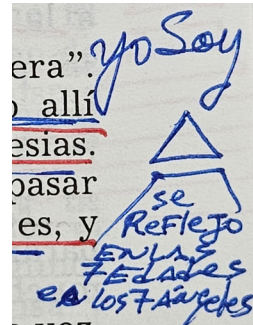 yo Soy
era".
o allí
esias.
pasar
es, y
se
ReFleJo
EN LAS
7 EDADES
en los 7 Ángeles